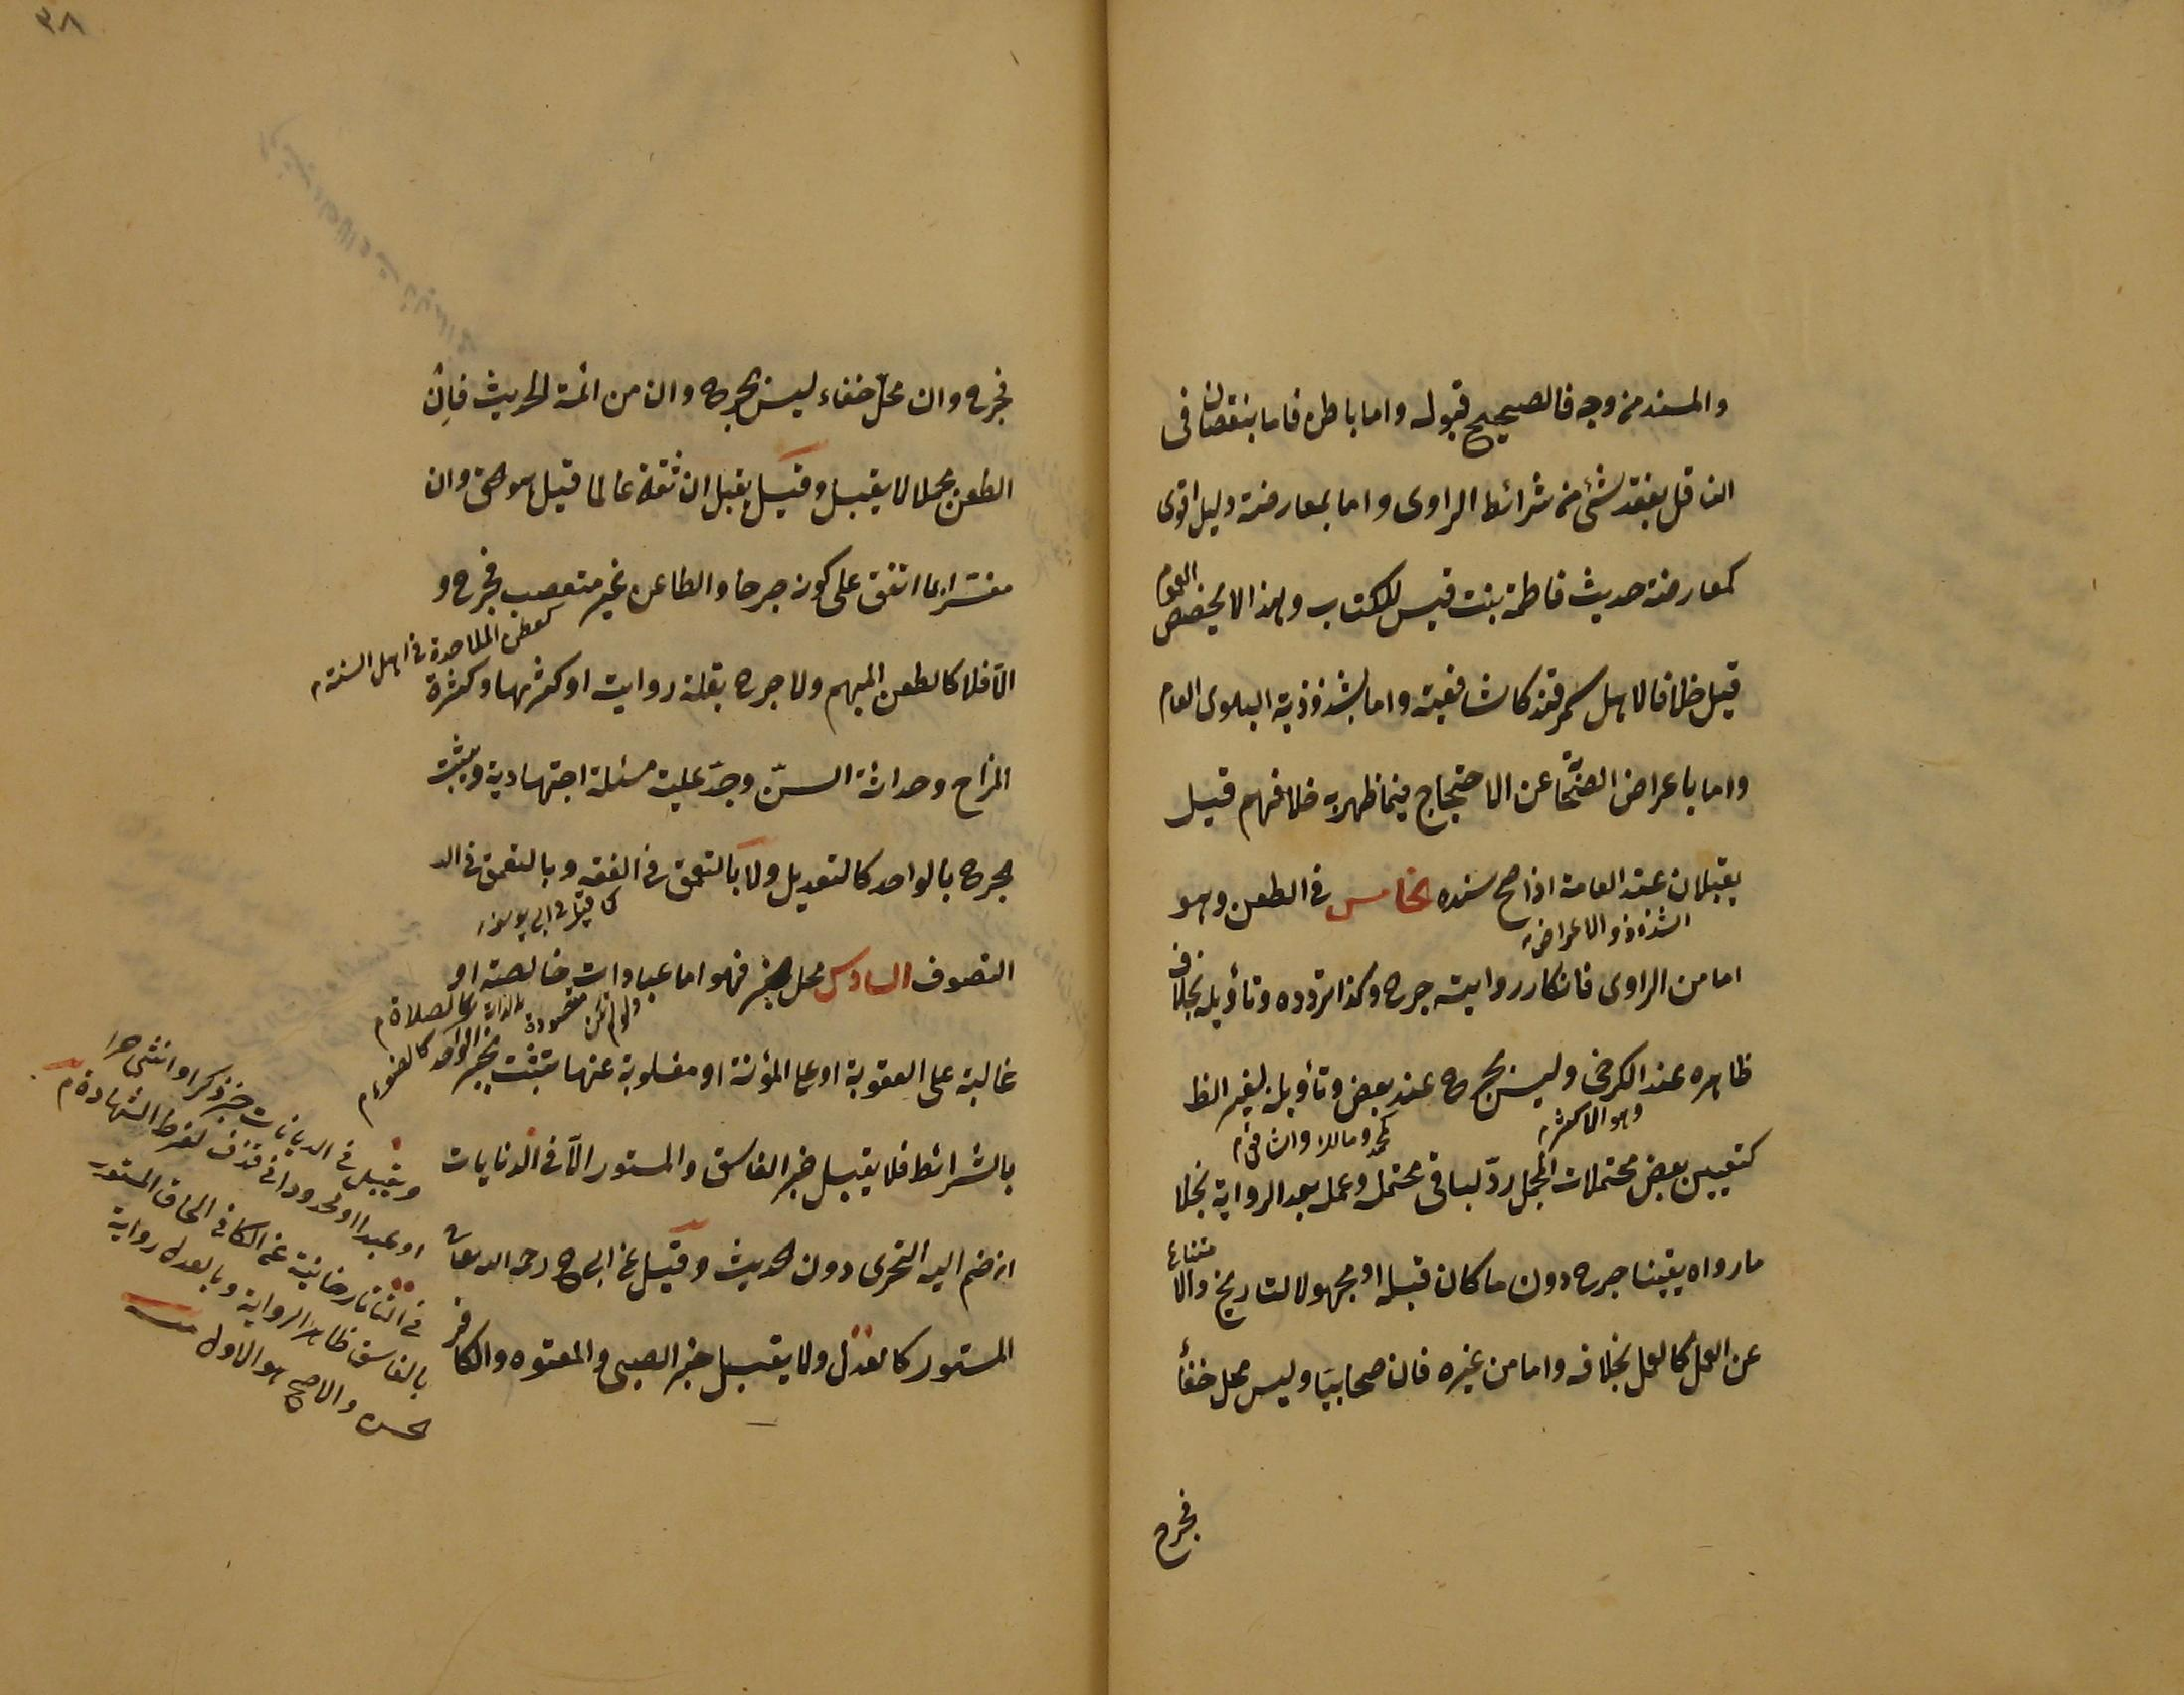 والمسند من وجه فالصحيح قبوله واما باطن فاما بنقصان فى
الناقل بفقد شئ من شرائط الراوى واما بمعارضة دليل اقوى
كمعارضة حديث فاطمة بنت قيس للكتاب ولهذا لا يخصص العام
قيل خلافا لاهل سمرقند كالشافعية واما بشذوذية البلوى العام
واما باعراض الصحابة عن الاحتجاج فيما ظهر به خلافهم قيل
يقبلان عند العامة اذا صح سنده الخامس فى الطعن وهو
الشذوذ والاعراض
اما من الراوى فانكار روايته جرح وكذا تردده وتأويله بخلاف
ظاهره عند الكرخى وليس بجرح عند بعض وتأويله لغير الظ
وهو الاكثر
كمحمد ومالك والشافعى
كتعيين بعض محتملات المجمل ردّ لباقى محتمله وعمل بعد الرواية بخلا
ما رواه يقينا جرح دون ما كان قبله او مجهول التاريخ والامتناع
عن العمل كالعمل بخلافه واما من غيره فان صحابيا وليس محل خفأ
فجرح
٣٨
فجرح وان محل خفاء ليس بجرح وان من ائمة الحديث فإن
الطعن مجملا لا يقبل وقيل يقبل ان ثقة عالما قيل هو الحق وان
مفسّرا بما اتفق على كونه جرحا والطاعن غير متعصب فجرح و
كطعن الملاحدة فى اهل السنة
الّا فلا كالطعن المبهم ولا جرح بقلة روايت او كثرتها وكثرة
المزاح وحداثة السنّ وجدّ عليه مسئلة اجتهادية ويثبت
الجرح بالواحد كالتعديل ولا بالتعمق فى الفقه وبالتعمق فى الد
كما قيل فى ابى يوسف
التصوف السادس محل الخبر فهو اما عبادات خالصة او
وان لم تكن مقصودة بالذات
كالصلاة
غالبة على العقوبة او على المؤنة او مغلوبة عنها يثبت بخبر الواحد كالوضوء
بالشرائط فلا يقبل خبر الفاسق والمستور الّا فى الديانات
ان ضم اليه التحرى دون الحديث وقيل عن ابى ح رحمه الله تعالى ان
المستور كالعدل ولا يقبل خبر الصبى والمعتوه والكافر
ويقبل فى الديانات خبر ذكر او انثى حرا
او عبدا او محدودا فى قذف لفرط الشهادة م
فى التاتارخانية عن الكافى الحاق المستور
بالفاسق ظاهر الرواية وبالعدل رواية
الحسن والاصح هو الاول منه